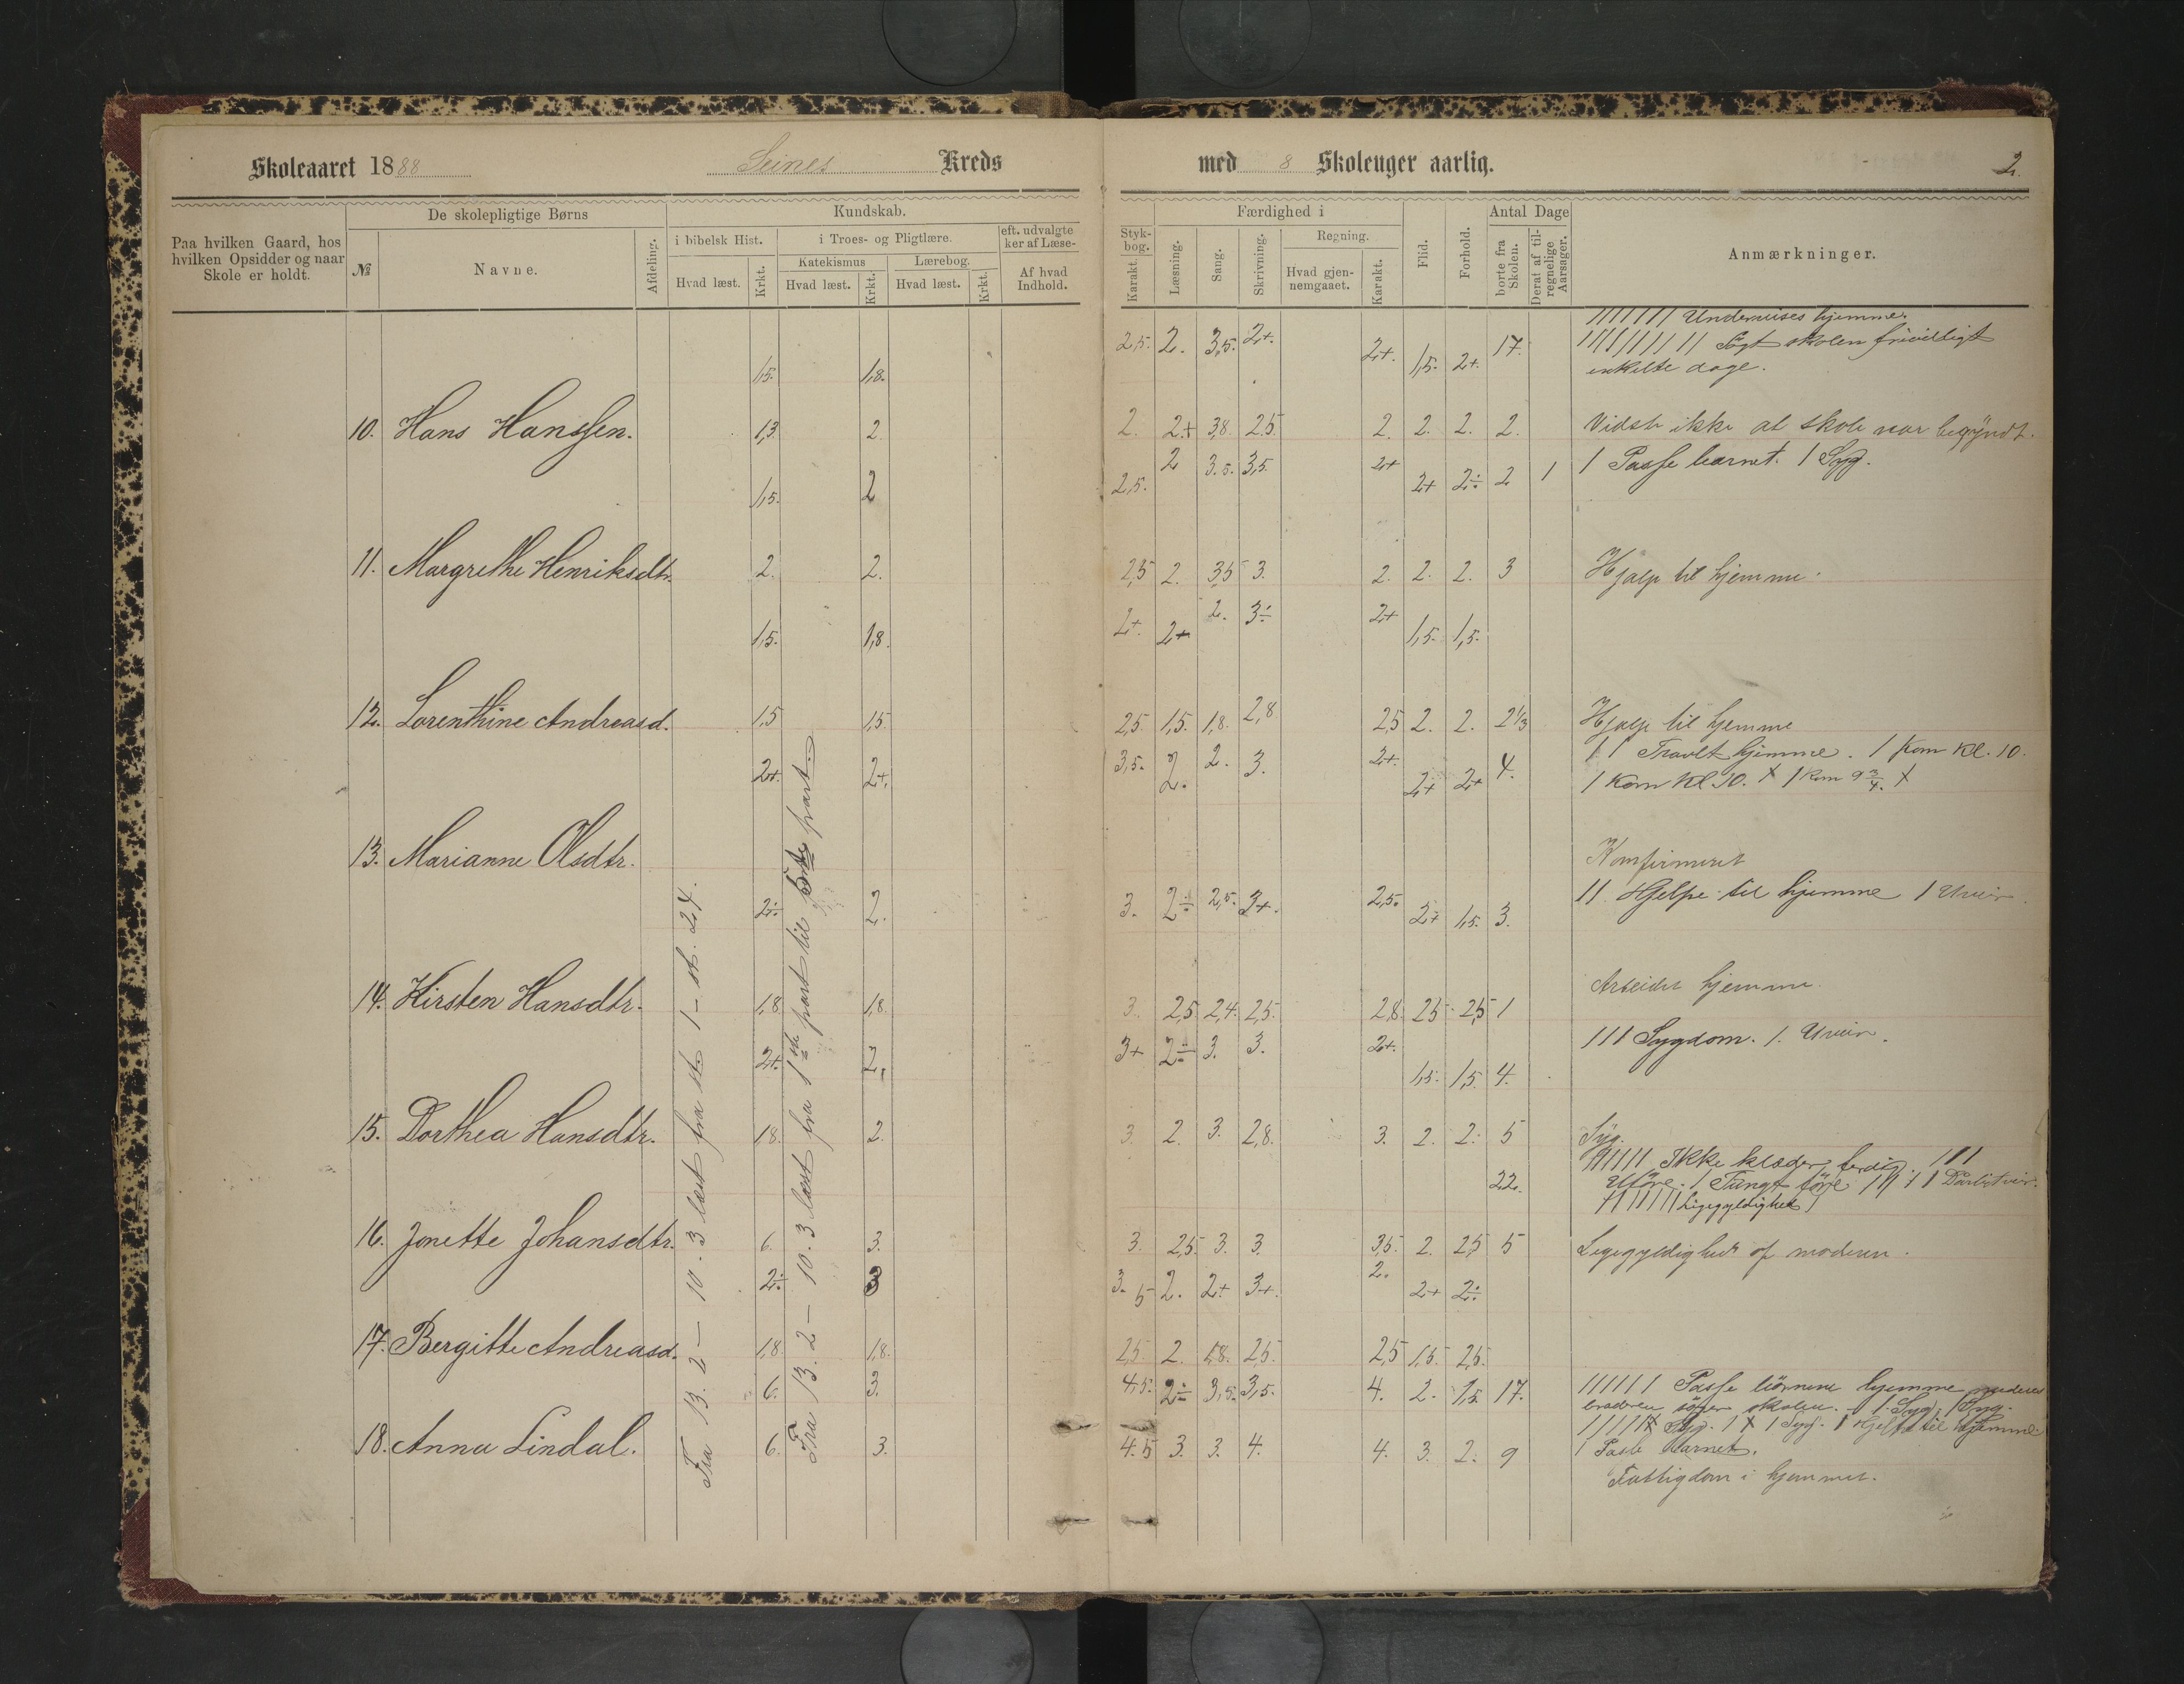 Skoleaaret 1888 Seines Kreds med 8 Skoleuger aarlig. 2.
Paa hvilken Gaard, hos hvilken Opsidder og naar Skole er holdt.
De skolepligtige Børns
№
Navne.
Afdeling.
Kundskab.
i bibelsk Hist.
Hvad læst.
Krkt.
i Troes- og Pligtlære.
Katekismus
Hvad læst.
Krkt.
Lærebog.
Hvad læst.
Krkt.
eft. udvalgte
ker af Læse-
Af hvad Indhold.
Styk-
bog.
Karakt.
Færdighed i
Læsning.
Sang.
Skrivning.
Regning.
Hvad gjen-
nemgaaet.
Karakt.
Flid.
Forhold.
Antal Dage
borte fra Skolen.
Deraf af til-
regnelige
Aarsager.
Anmærkninger.
1,5. 1,8. 2,5. 2. 3,5. 2+. 2+. 1,5. 2+. 17. ||||||| Undervises hjemme.
||||||||| Søgt skolen frivilligt
enkelte dage.
10. Hans Hanssen. 1,3 2. 2. 2+ 3,8. 2,5 2. 2. 2. 2. Vidste ikke at skole var begyndt.
1,5. 2 2,5. 2 3.5. 3,5. 2+ 2+ 2÷ 2 1 | Passe barnet. | Syg.
11. Margrethe Henriksdtr. 2. 2. 2,5 2. 3,5 3. 2. 2. 2. 3 Hjælp til hjemme.
1,5. 1,8. 2+. 2+ 2. 3÷ 2+ 1,5. 1,5.
12. Lorenthine Andreasd. 1,5 1,5. 2,5 1,5. 1,8. 2,8 2,5 2. 2. 2 1/3 Hjælp til hjemme
2+. 2+. 3,5. 2. 2. 3. 2+. 2+ 2+ 4. || Travlt hjemme. | Kom Kl. 10.
| Kom Kl 10. X | Kom 9 3/4. X
13. Marianne Olsdtr. Konfirmeret
2÷ 2. 3. 2÷ 2,5. 3+. 2,5. 2+ 1,5. 3. || Hjelpe til hjemme | Uveir.
14. Kirsten Hansdtr. 1,8. 1,8. 3. 2,5 2,4. 2,5. 2,8. 2,5 2,5 1 Arbeidet hjemme.
2+. 2. 3+ 2÷ 3. 3. 2+. 1,5. 1,5. 4. ||| Sygdom. |. Uveir.
15. Dorthea Hansdtr. 1,8. 2. 3. 2. 3. 2,8. 3. 2. 2. 5 Syg.
22. |||||| Ikke klæder færdig. |||
Uføre. | Tungt føre
||||||| Ligegyldighed
16. Jonette Johansdtr. 6. 3. 3. 2,5. 3. 3. 3,5. 2. 2,5 5 Legegyldighed af moderen.
2÷ 3 3.5 2. 2+ 3+. 2. 2+ 2÷
17. Bergitte Andreasd. 1,8 1,8. 2,5. 2. 1,8. 2,5. 2,5 1,5. 2,5.
6. 3. 4,5. 2÷ 3,5. 3,5. 4. 2. 1,5. 17. |||||| Passe børnene hjemme
broderen søger skolen. | Syg. | Syg.
Syg. | X | Syg. | Hjelpe til hjemme.
18. Anna Lindal. 6. 3. 4.5 3. 3. 4. 4. 3. 2. 9 | Passe barnet.
Fattigdom i hjemmet.
Fra 13. 2 — 10. 3 læst fra st. 1 – st. 24.
Fra 13. 2 — 10. 3 læst fra 1ste part til 5te part.